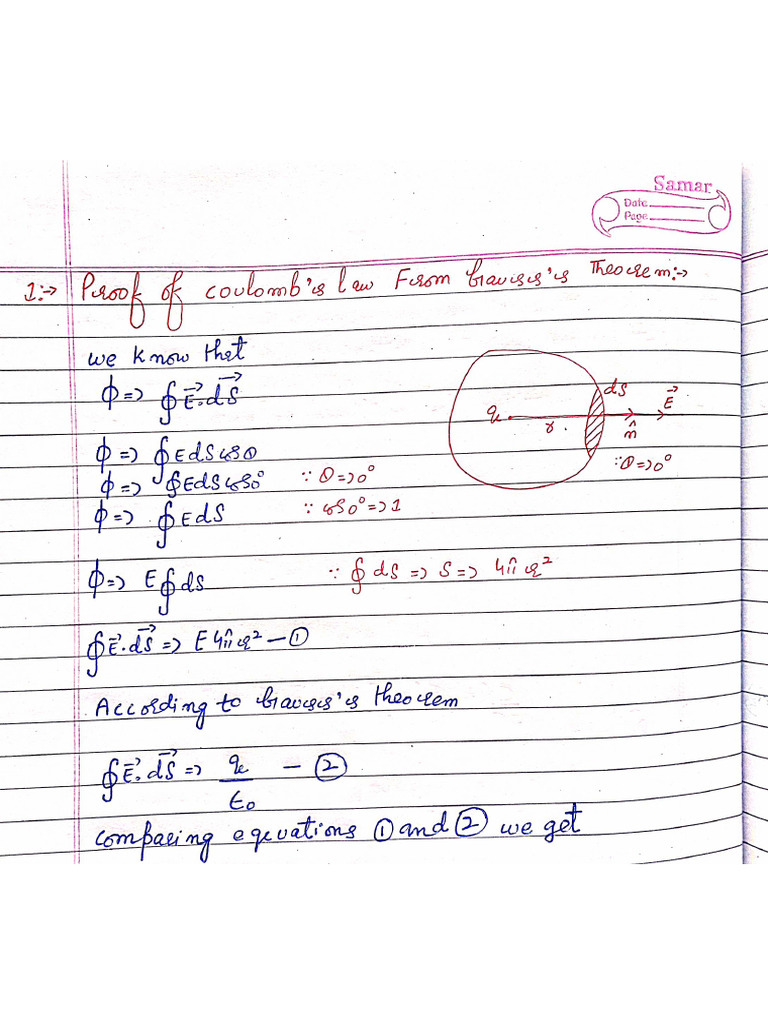 Samar
Date
Page
1:→ Proof of coulomb's law From Gauss's Theorem:→
we know that
ϕ=> ∮E⃗.dS⃗
ϕ=> ∮EdScosθ
ϕ=> ∮EdScos0° ∵ θ=>0°
ϕ=> ∮EdS ∵ cos0°=>1
ϕ=> E∮ds ∵ ∮ds => S=> 4πr²
∮E⃗.dS⃗=> E4πr² — ①
According to Gauss's theorem
∮E⃗.dS⃗=> q/ε₀ — ②
comparing equations ① and ② we get
dS
E⃗
q
r
n̂
∵θ=>0°